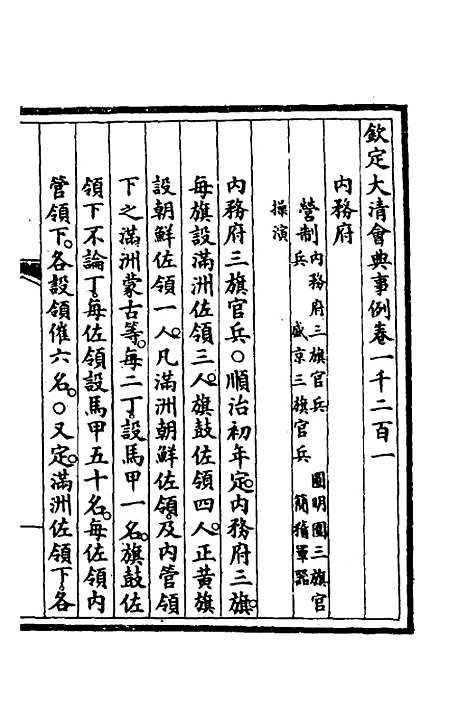 欽定大清會典事例卷一千二百一
內務府
營制內務府三旗官兵 圓明園三旗官
兵 盛京三旗官兵 簡稽軍器
操演
內務府三旗官兵○順治初年定。內務府三旗。
每旗設滿洲佐領三人。旗鼓佐領四人。正黃旗
設朝鮮佐領一人。凡滿洲朝鮮佐領。及內管領
下之滿洲蒙古等。每二丁。設馬甲一名。旗鼓佐
領下不論丁。每佐領設馬甲五十名。每佐領內
管領下。各設領催六名。○又定。滿洲佐領下。各